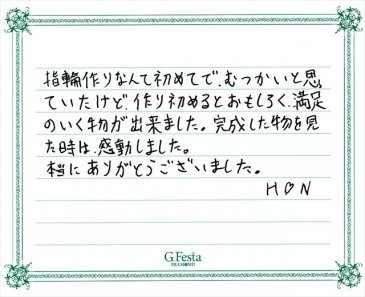 指輪作りなんて初めてで、むつかいと思
っていたけど、作り初めるとおもしろく、満足
のいく物が出来ました。完成した物を見
た時は、感動しました。
本当にありがとうございました。
H♡N
G.Festa
DIAMOND